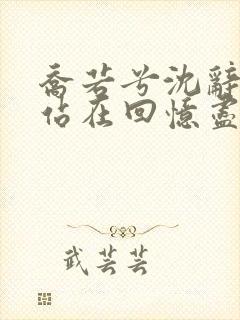 喬若兮沈辭
佔在回憶盡
武芸芸